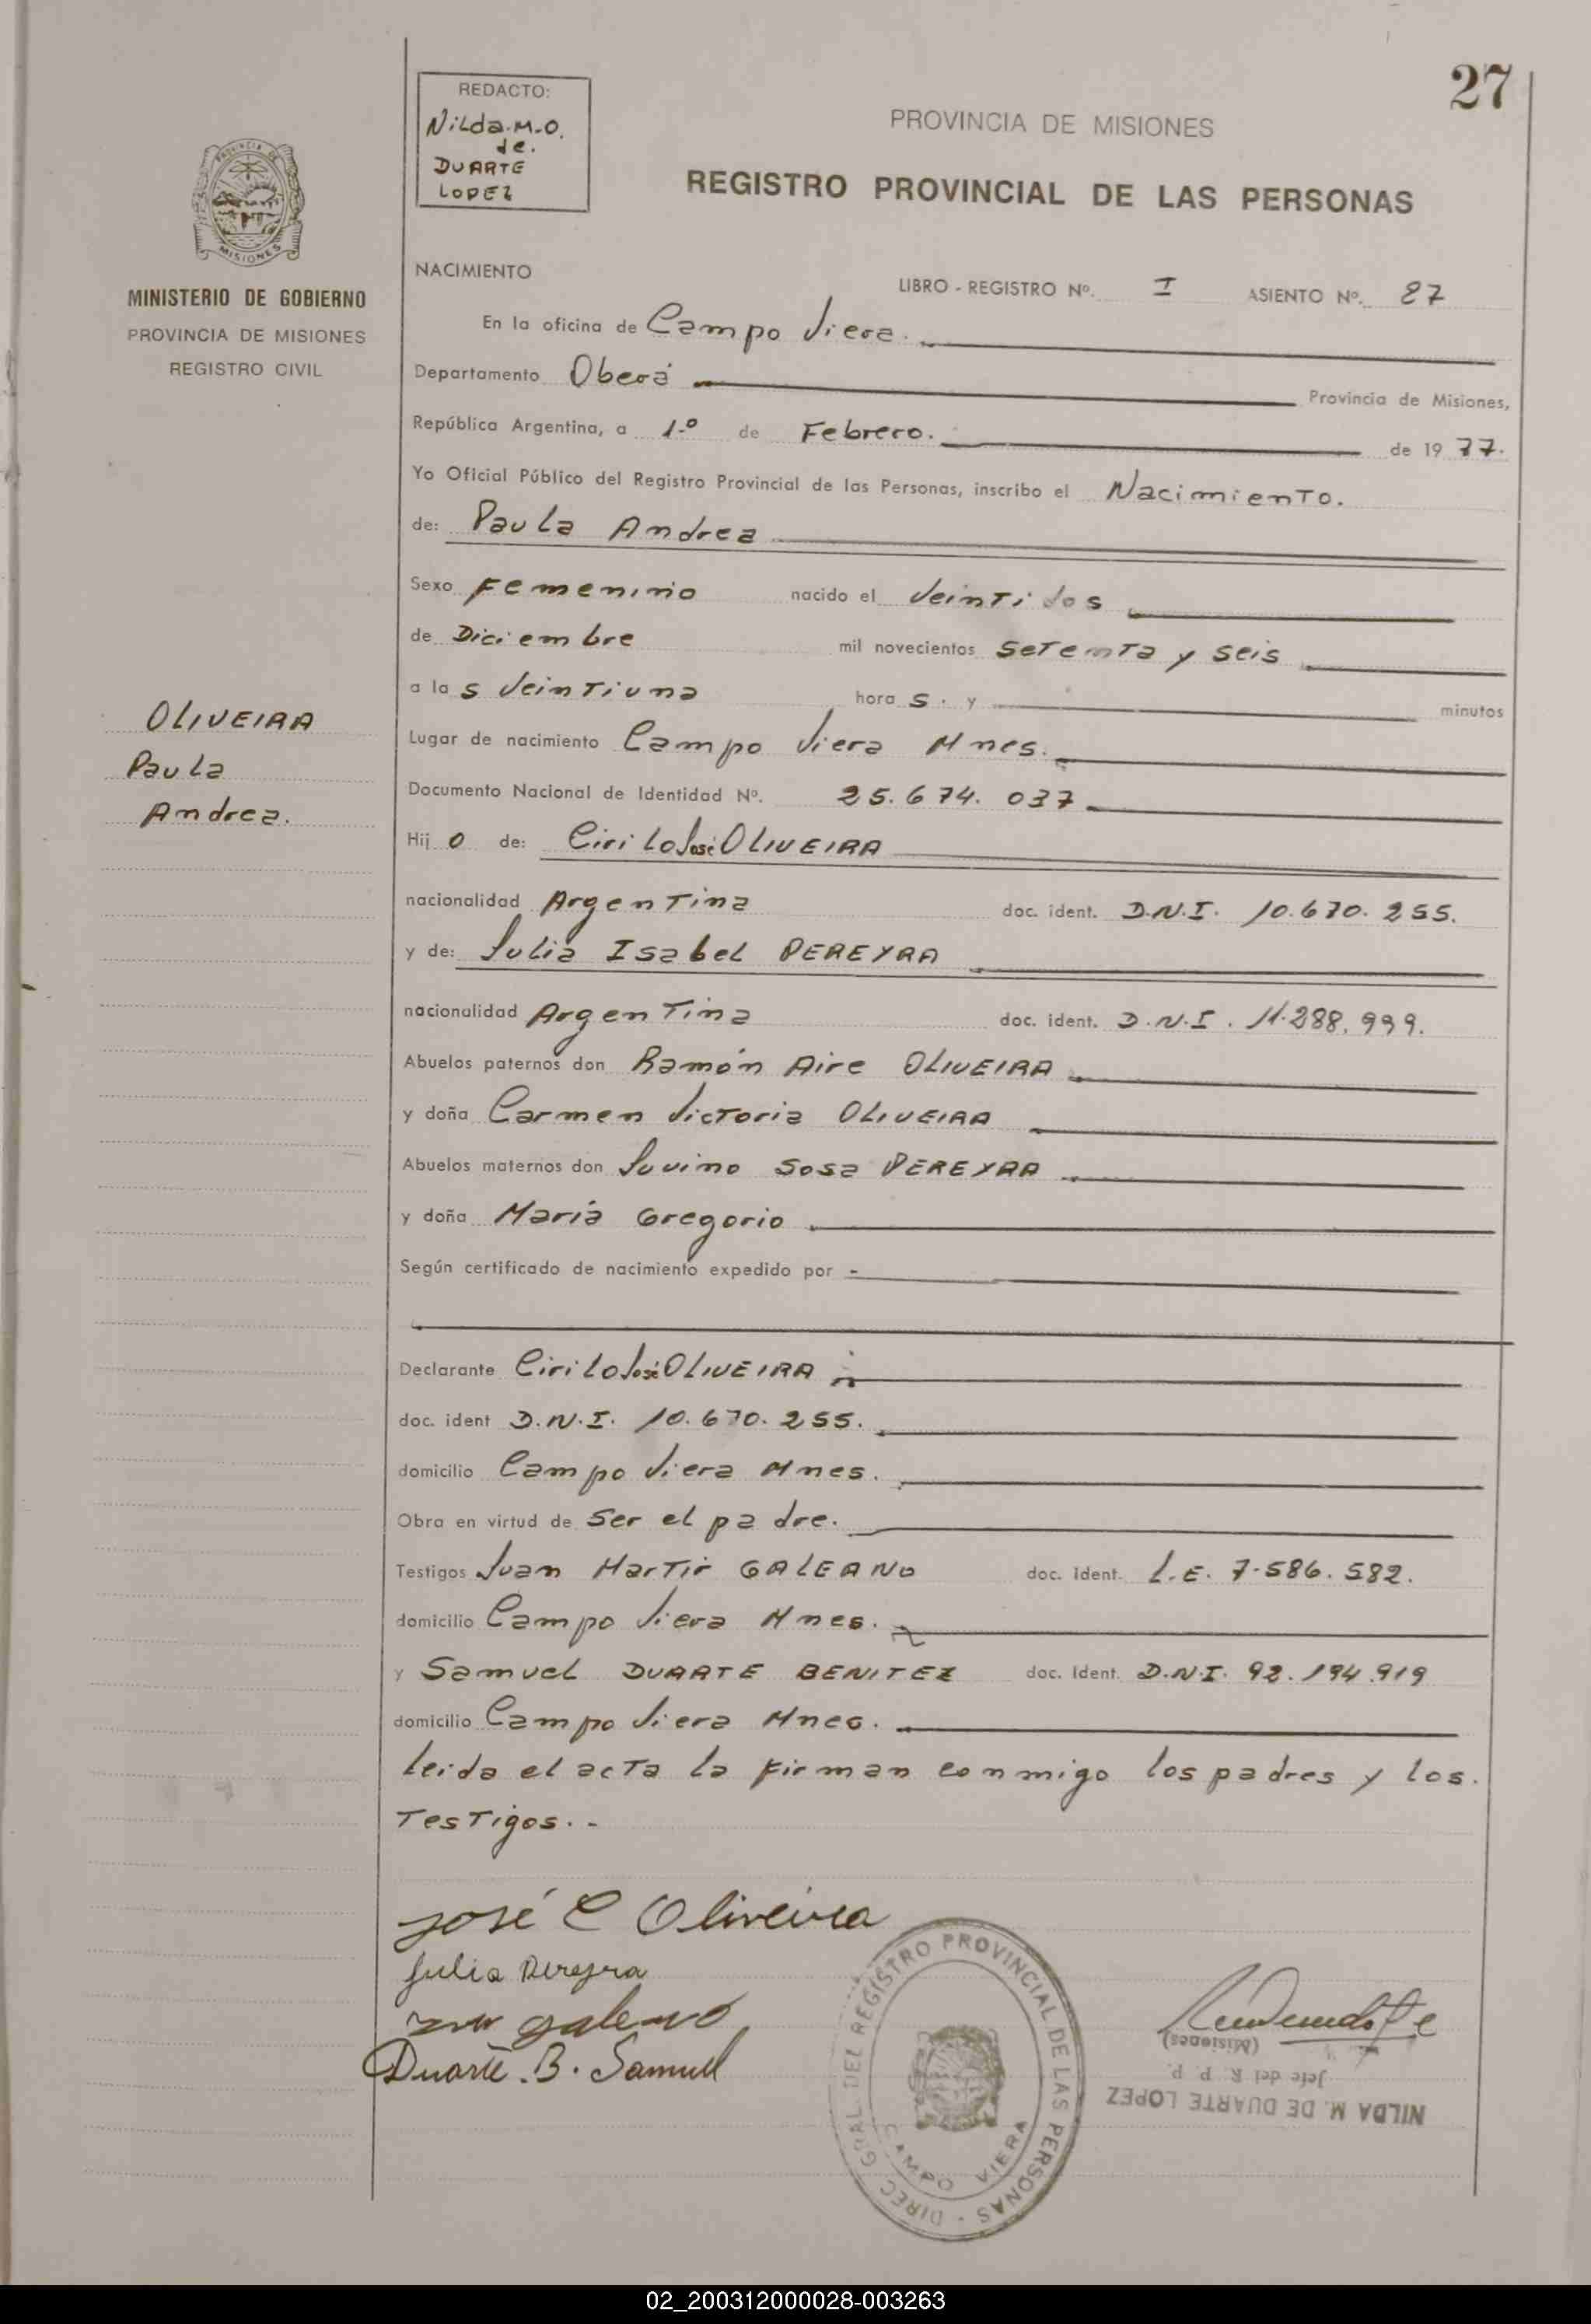 27
REDACTO:
Nilda.M.O.
de.
DUARTE
LOPEZ
PROVINCIA DE MISIONES
REGISTRO PROVINCIAL DE LAS PERSONAS
PROVINCIA DE
MISIONES
MINISTERIO DE GOBIERNO
PROVINCIA DE MISIONES
REGISTRO CIVIL
NACIMIENTO
LIBRO - REGISTRO Nº. I ASIENTO Nº. 27
En la oficina de Campo Viera.
Departamento Oberá Provincia de Misiones,
República Argentina, a 1.º de Febrero. de 19 77.
Yo Oficial Público del Registro Provincial de las Personas, inscribo el Nacimiento.
de: Paula Andrea
Sexo Femenino nacido el Veintidos
de Diciembre mil novecientos setenta y seis
a la s Veintiuna hora s. y minutos
OLIVEIRA
Paula
Andrea.
Lugar de nacimiento Campo Viera Mnes.
Documento Nacional de Identidad Nº. 25.674.037
Hij o de: Cirilo José OLIVEIRA
nacionalidad Argentina doc. ident. D.N.I. 10.670.255.
y de: Julia Isabel PEREYRA
nacionalidad Argentina doc. ident. D.N.I. 11.288.999.
Abuelos paternos don Ramón Aire OLIVEIRA
y doña Carmen Victoria OLIVEIRA
Abuelos maternos don Juvino Sosa PEREYRA
y doña María Gregorio
Según certificado de nacimiento expedido por -
Declarante Cirilo José OLIVEIRA
doc. ident D.N.I. 10.670.255.
domicilio Campo Viera Mnes.
Obra en virtud de ser el padre.
Testigos Juan Martir GALEANO doc. ident. L.E. 7.586.582.
domicilio Campo Viera Mnes.
y Samuel DUARTE BENITEZ doc. Ident. D.N.I. 92.194.919
domicilio Campo Viera Mnes.
leida el acta la firman conmigo los padres y los.
Testigos. -
José C Oliveira
Julia Pereyra
galeano
Duarte. B. Samuel
DIREC. GRAL. DEL REGISTRO PROVINCIAL DE LAS PERSONAS -
CAMPO VIERA
NILDA M. DE DUARTE LOPEZ
Jefe del R. P. P.
(Misiones)
02_200312000028-003263